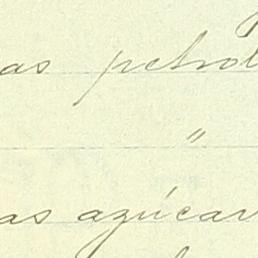 as petrol
"
as azúcar